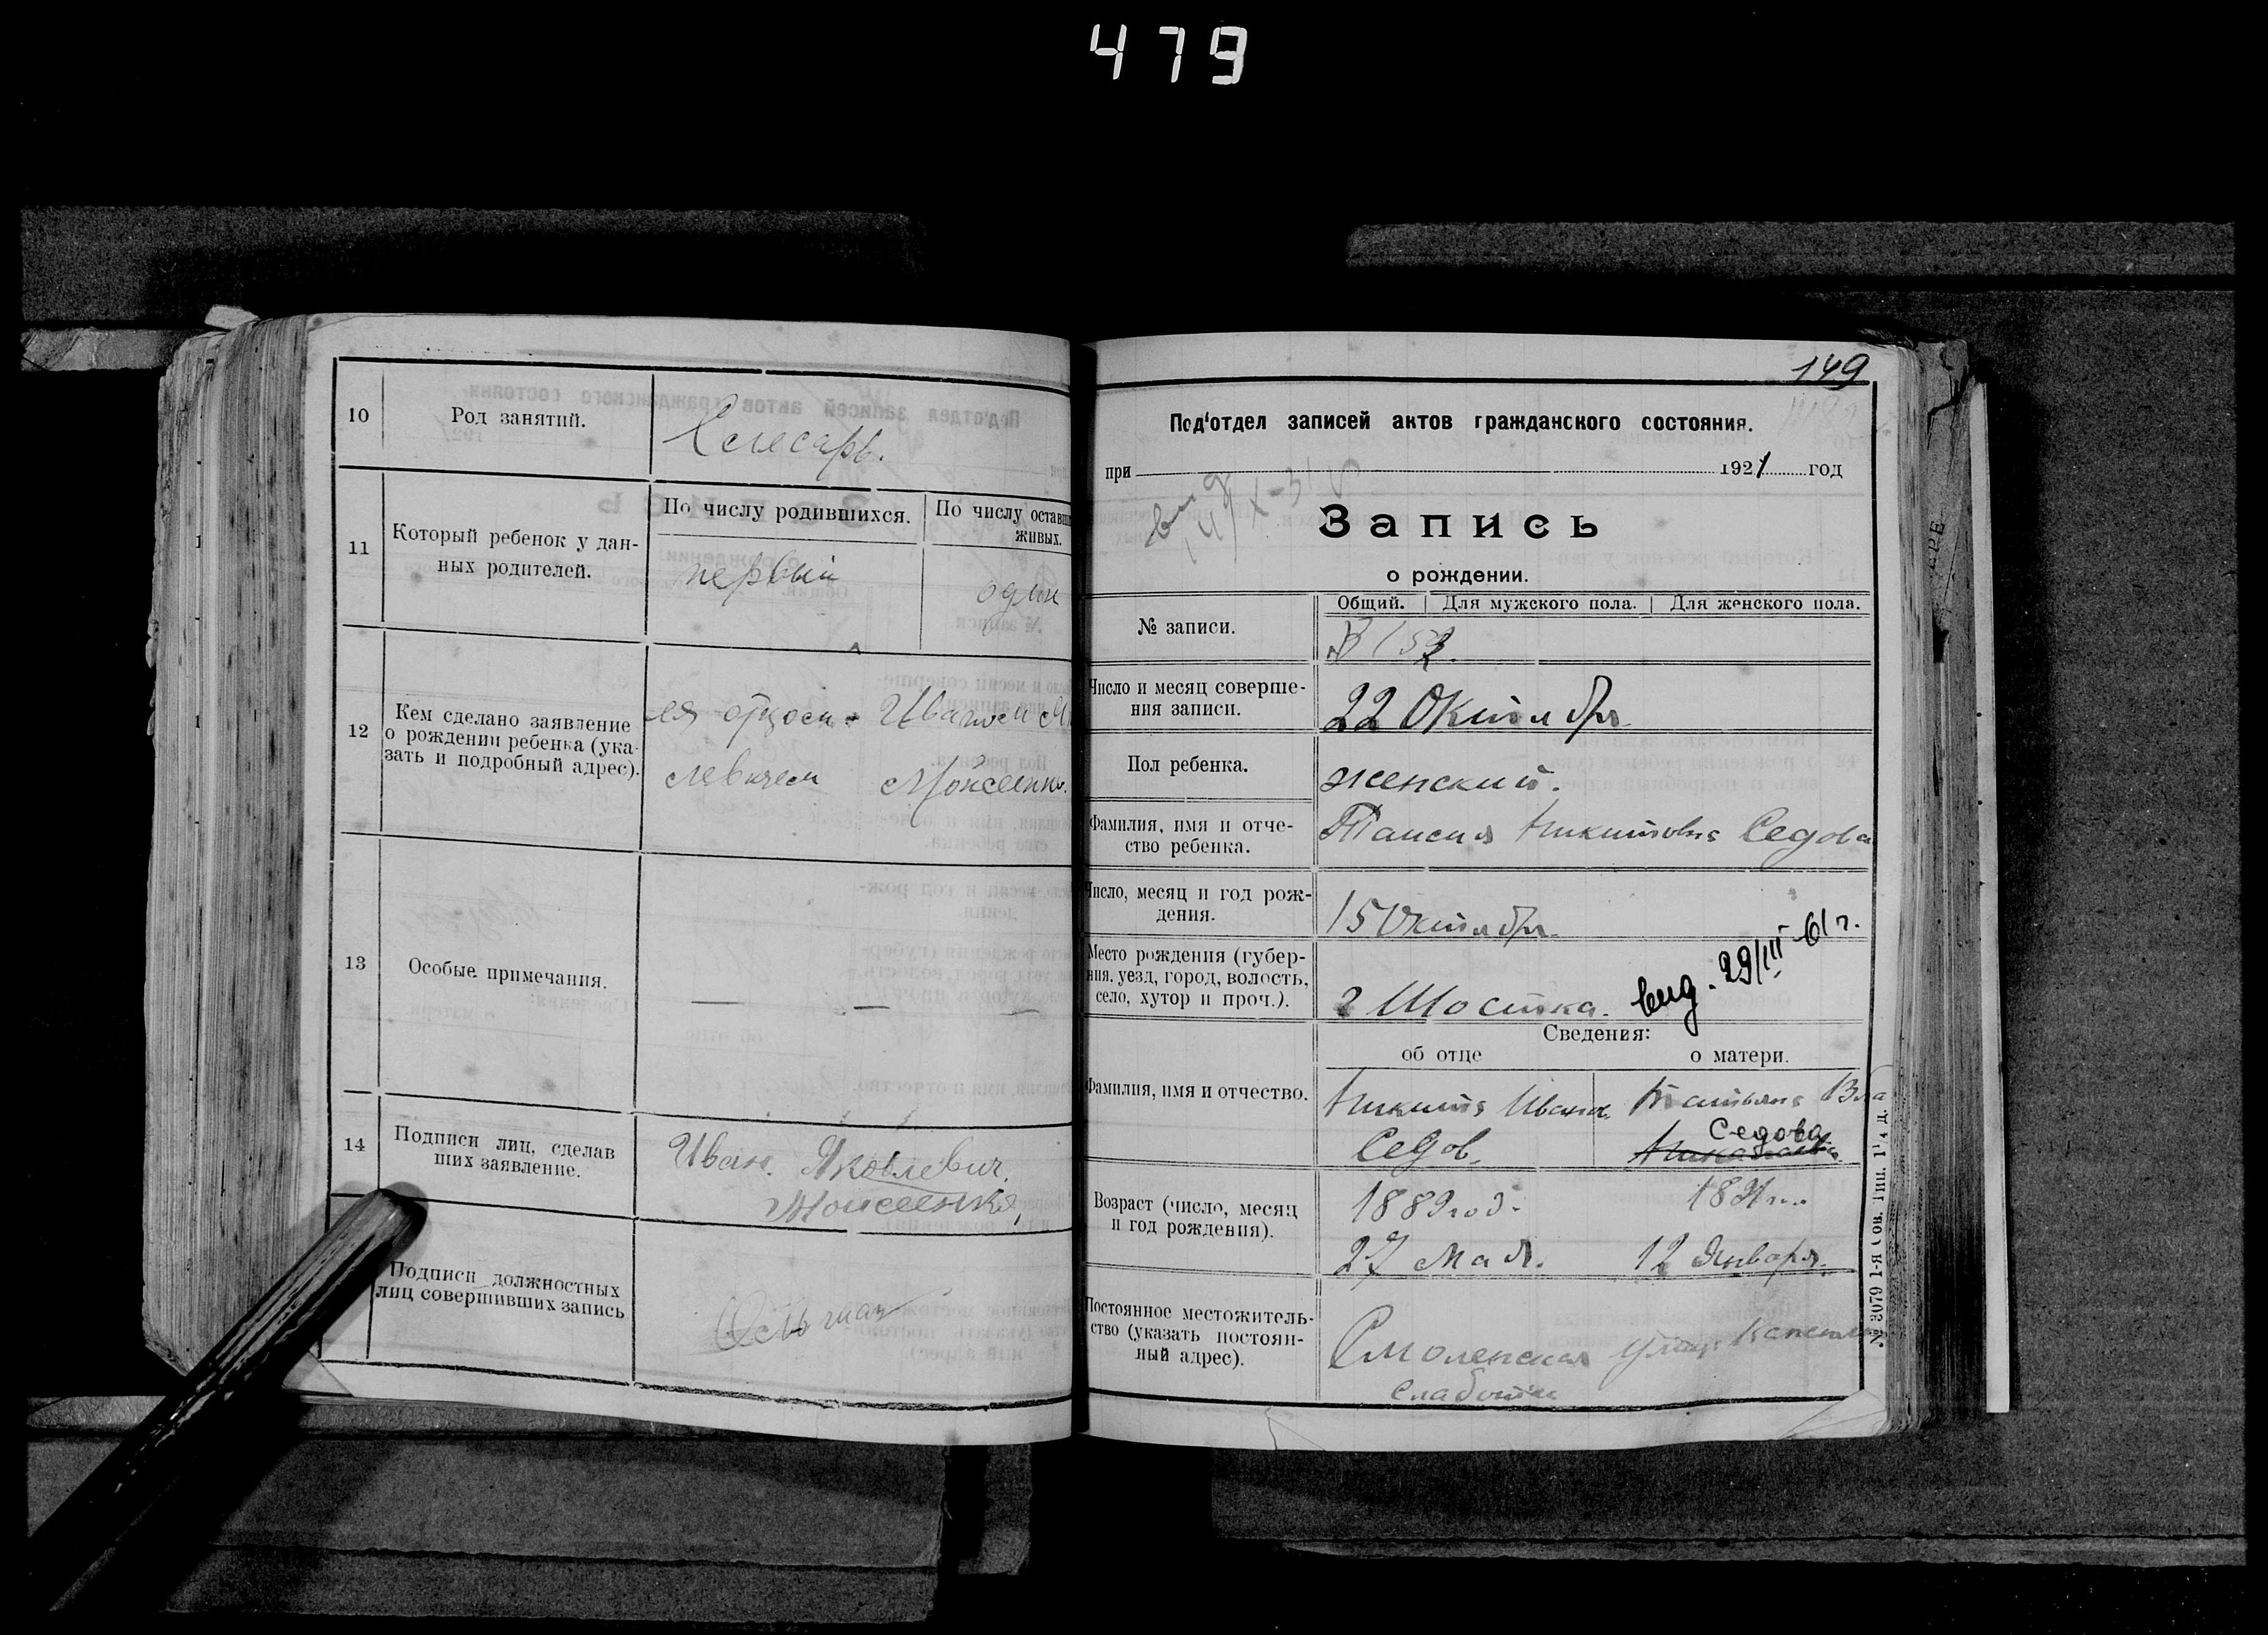 479
10 Род занятий. Слесарь.
11 Который ребенок у дан-
ных родителей.
По числу родившихся. По числу оставш
живых.
первый один
12 Кем сделано заявление
о рождении ребенка (ука-
зать и подробный адрес).
ея отцом - Иваном
левичем Моисеенко.
13 Особые примечания. — — —
14 Подписи лиц, сделав
ших заявление.
Иван Яковлевич
Моисеенко
Подписи должностных
лиц совершивших запись
149
Под'отдел записей актов гражданского состояния.
при 1921 год
Запись
о рождении.
Общий. Для мужского пола. Для женского пола.
№ записи.
Число и месяц соверше-
ния записи.
22 Октября
Пол ребенка. женский.
Фамилия, имя и отче-
ство ребенка.
Таисия Никитовна Седова
Число, месяц и год рож-
дения.
15 Октября
Место рождения (губер-
ния, уезд, город, волость,
село, хутор и проч.).
г Шостка. выд. 29/III-61 г.
Сведения:
об отце о матери.
Фамилия, имя и отчество.
Никита Иванов. Татьяна Вла
Седов. Седова
Возраст (число, месяц
и год рождения).
1889 год.
27 мая. 12 Января.
Постоянное местожитель-
ство (указать постоян-
ный адрес).
Смоленская улица
слабодка
№ 3079 1-я Сов. Тип. 1¼ д.